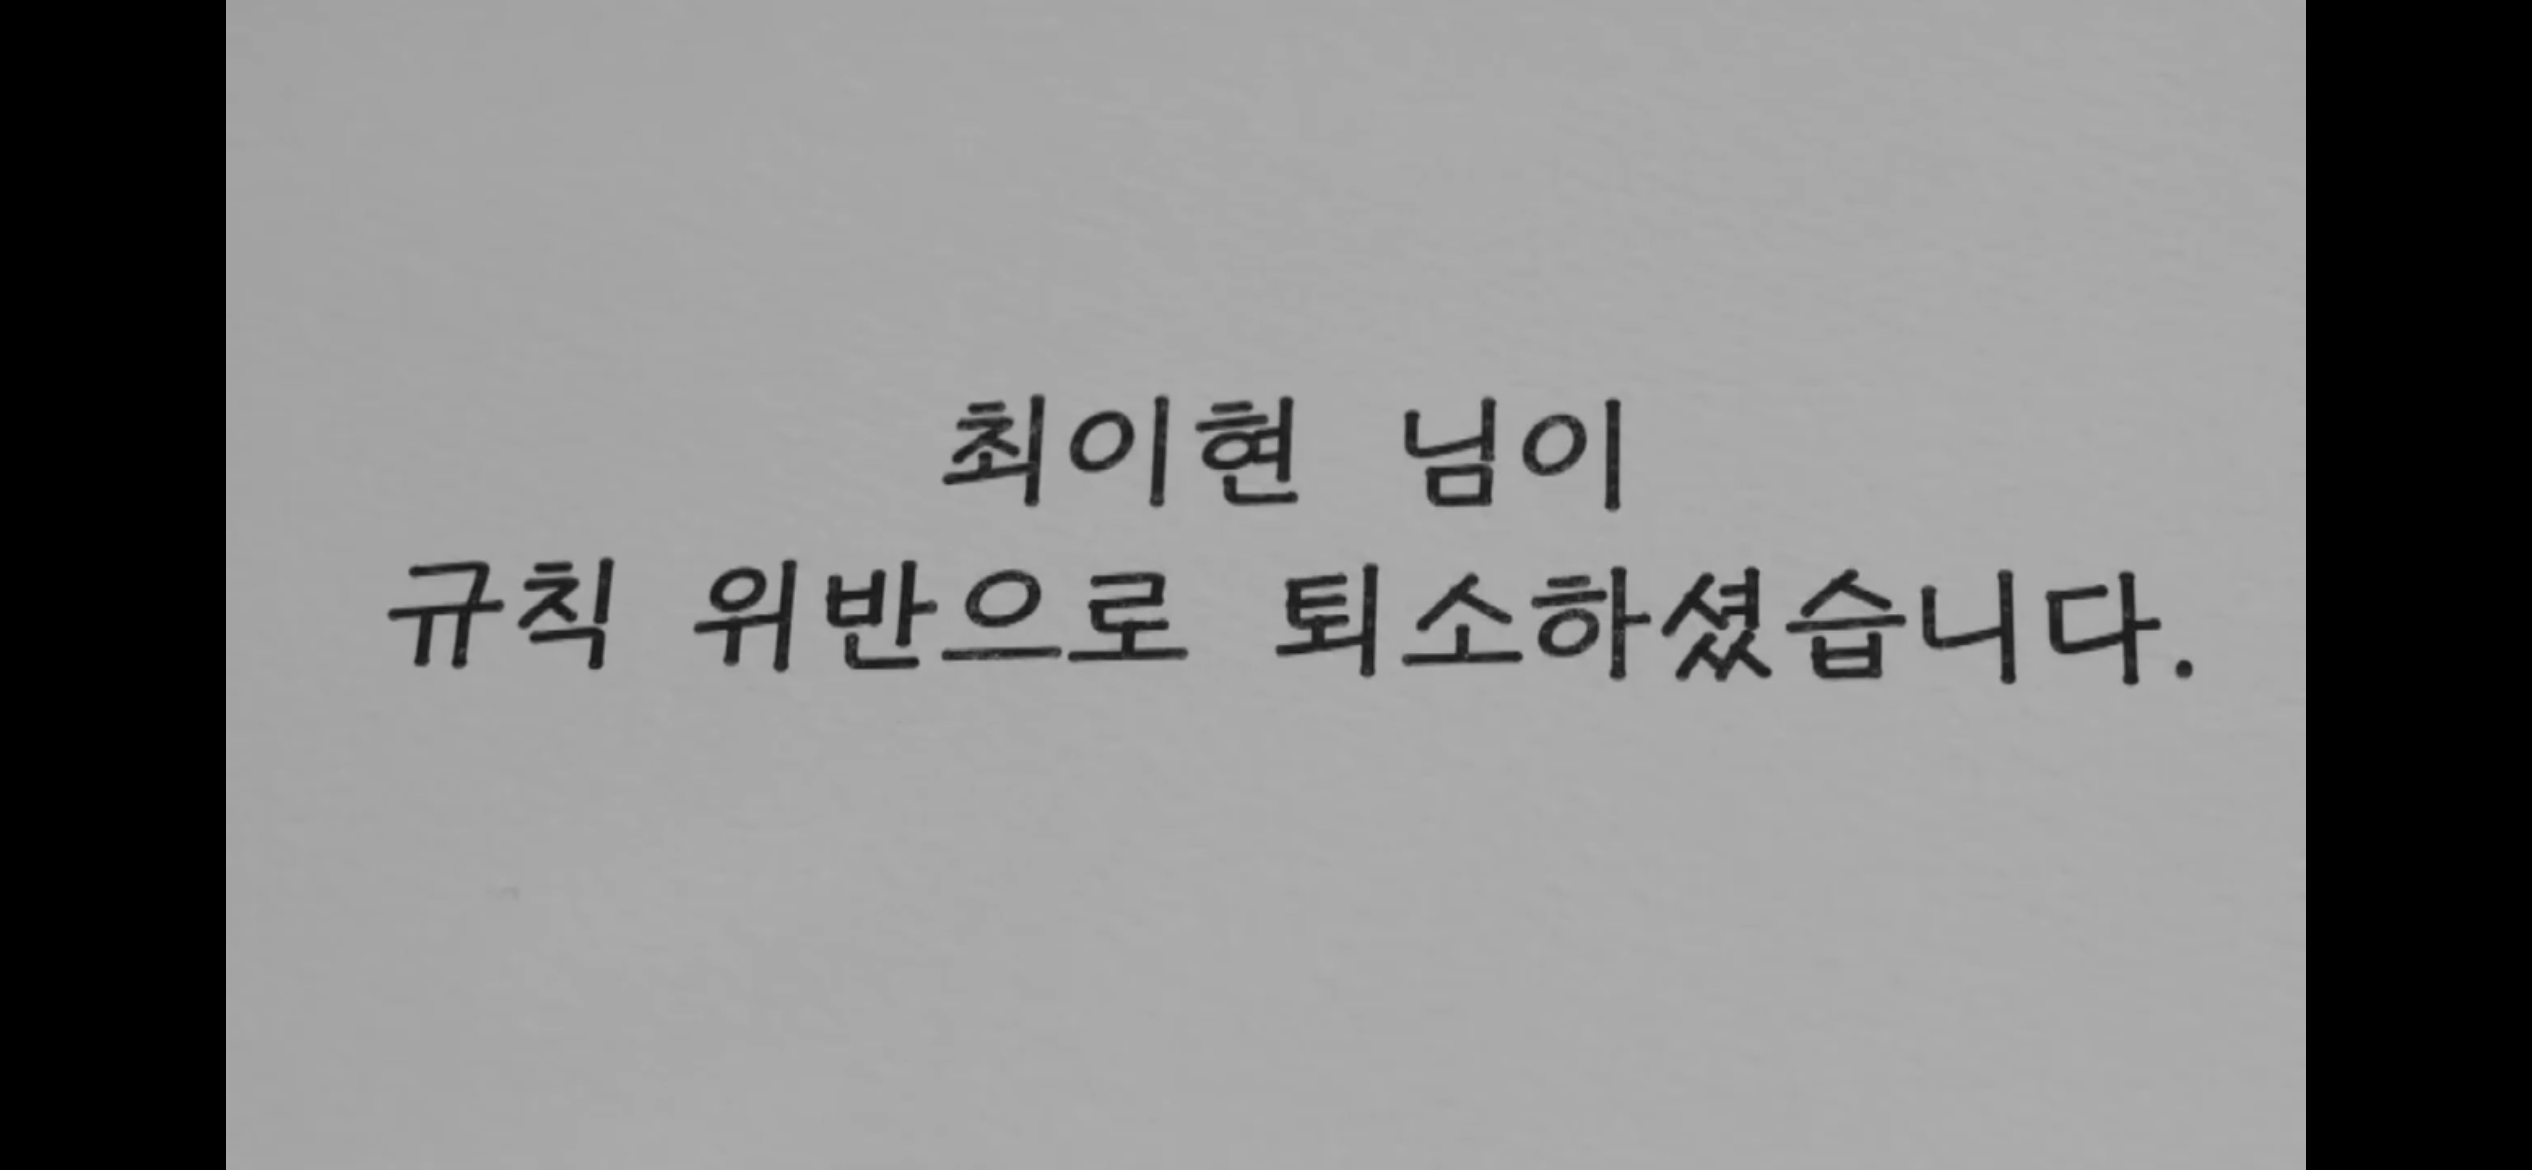 최이현 님이
규칙 위반으로 퇴소하셨습니다.